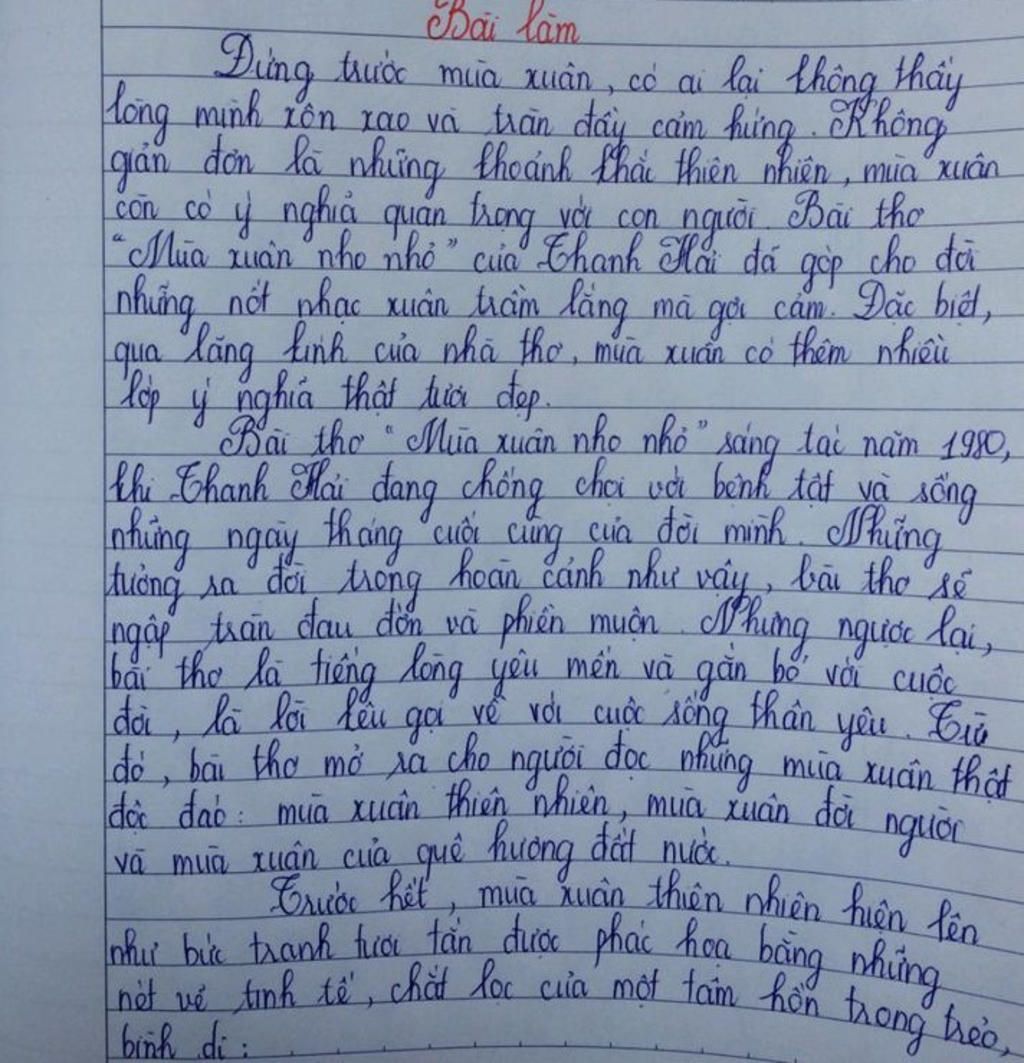 Bài làm
Đứng trước mùa xuân, có ai lại không thấy
lòng mình xôn xao và tràn đầy cảm hứng. Không
giản đơn là những khoảnh khắc thiên nhiên, mùa xuân
còn có ý nghĩa quan trọng với con người. Bài thơ
"Mùa xuân nho nhỏ" của Thanh Hải đã góp cho đời
những nốt nhạc xuân trầm lắng mà gợi cảm. Đặc biệt,
qua lăng kính của nhà thơ, mùa xuân có thêm nhiều
lớp ý nghĩa thật tươi đẹp.
Bài thơ "Mùa xuân nho nhỏ" sáng tác năm 1980,
khi Thanh Hải đang chống chọi với bệnh tật và sống
những ngày tháng cuối cùng của đời mình. Những
tưởng ra đời trong hoàn cảnh như vậy, bài thơ sẽ
ngập tràn đau đớn và phiền muộn. Nhưng ngược lại,
bài thơ là tiếng lòng yêu mến và gắn bó với cuộc
đời, là lời kêu gọi về với cuộc sống thân yêu. Từ
đó, bài thơ mở ra cho người đọc những mùa xuân thật
độc đáo: mùa xuân thiên nhiên, mùa xuân đời người
và mùa xuân của quê hương đất nước.
Trước hết, mùa xuân thiên nhiên hiện lên
như bức tranh tươi tắn được phác họa bằng những
nét vẽ tinh tế, chắt lọc của một tâm hồn trong trẻo,
bình dị: